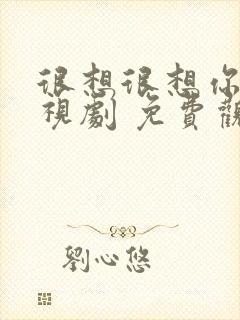 很想很想你
視劇 免費觀
劉心悠